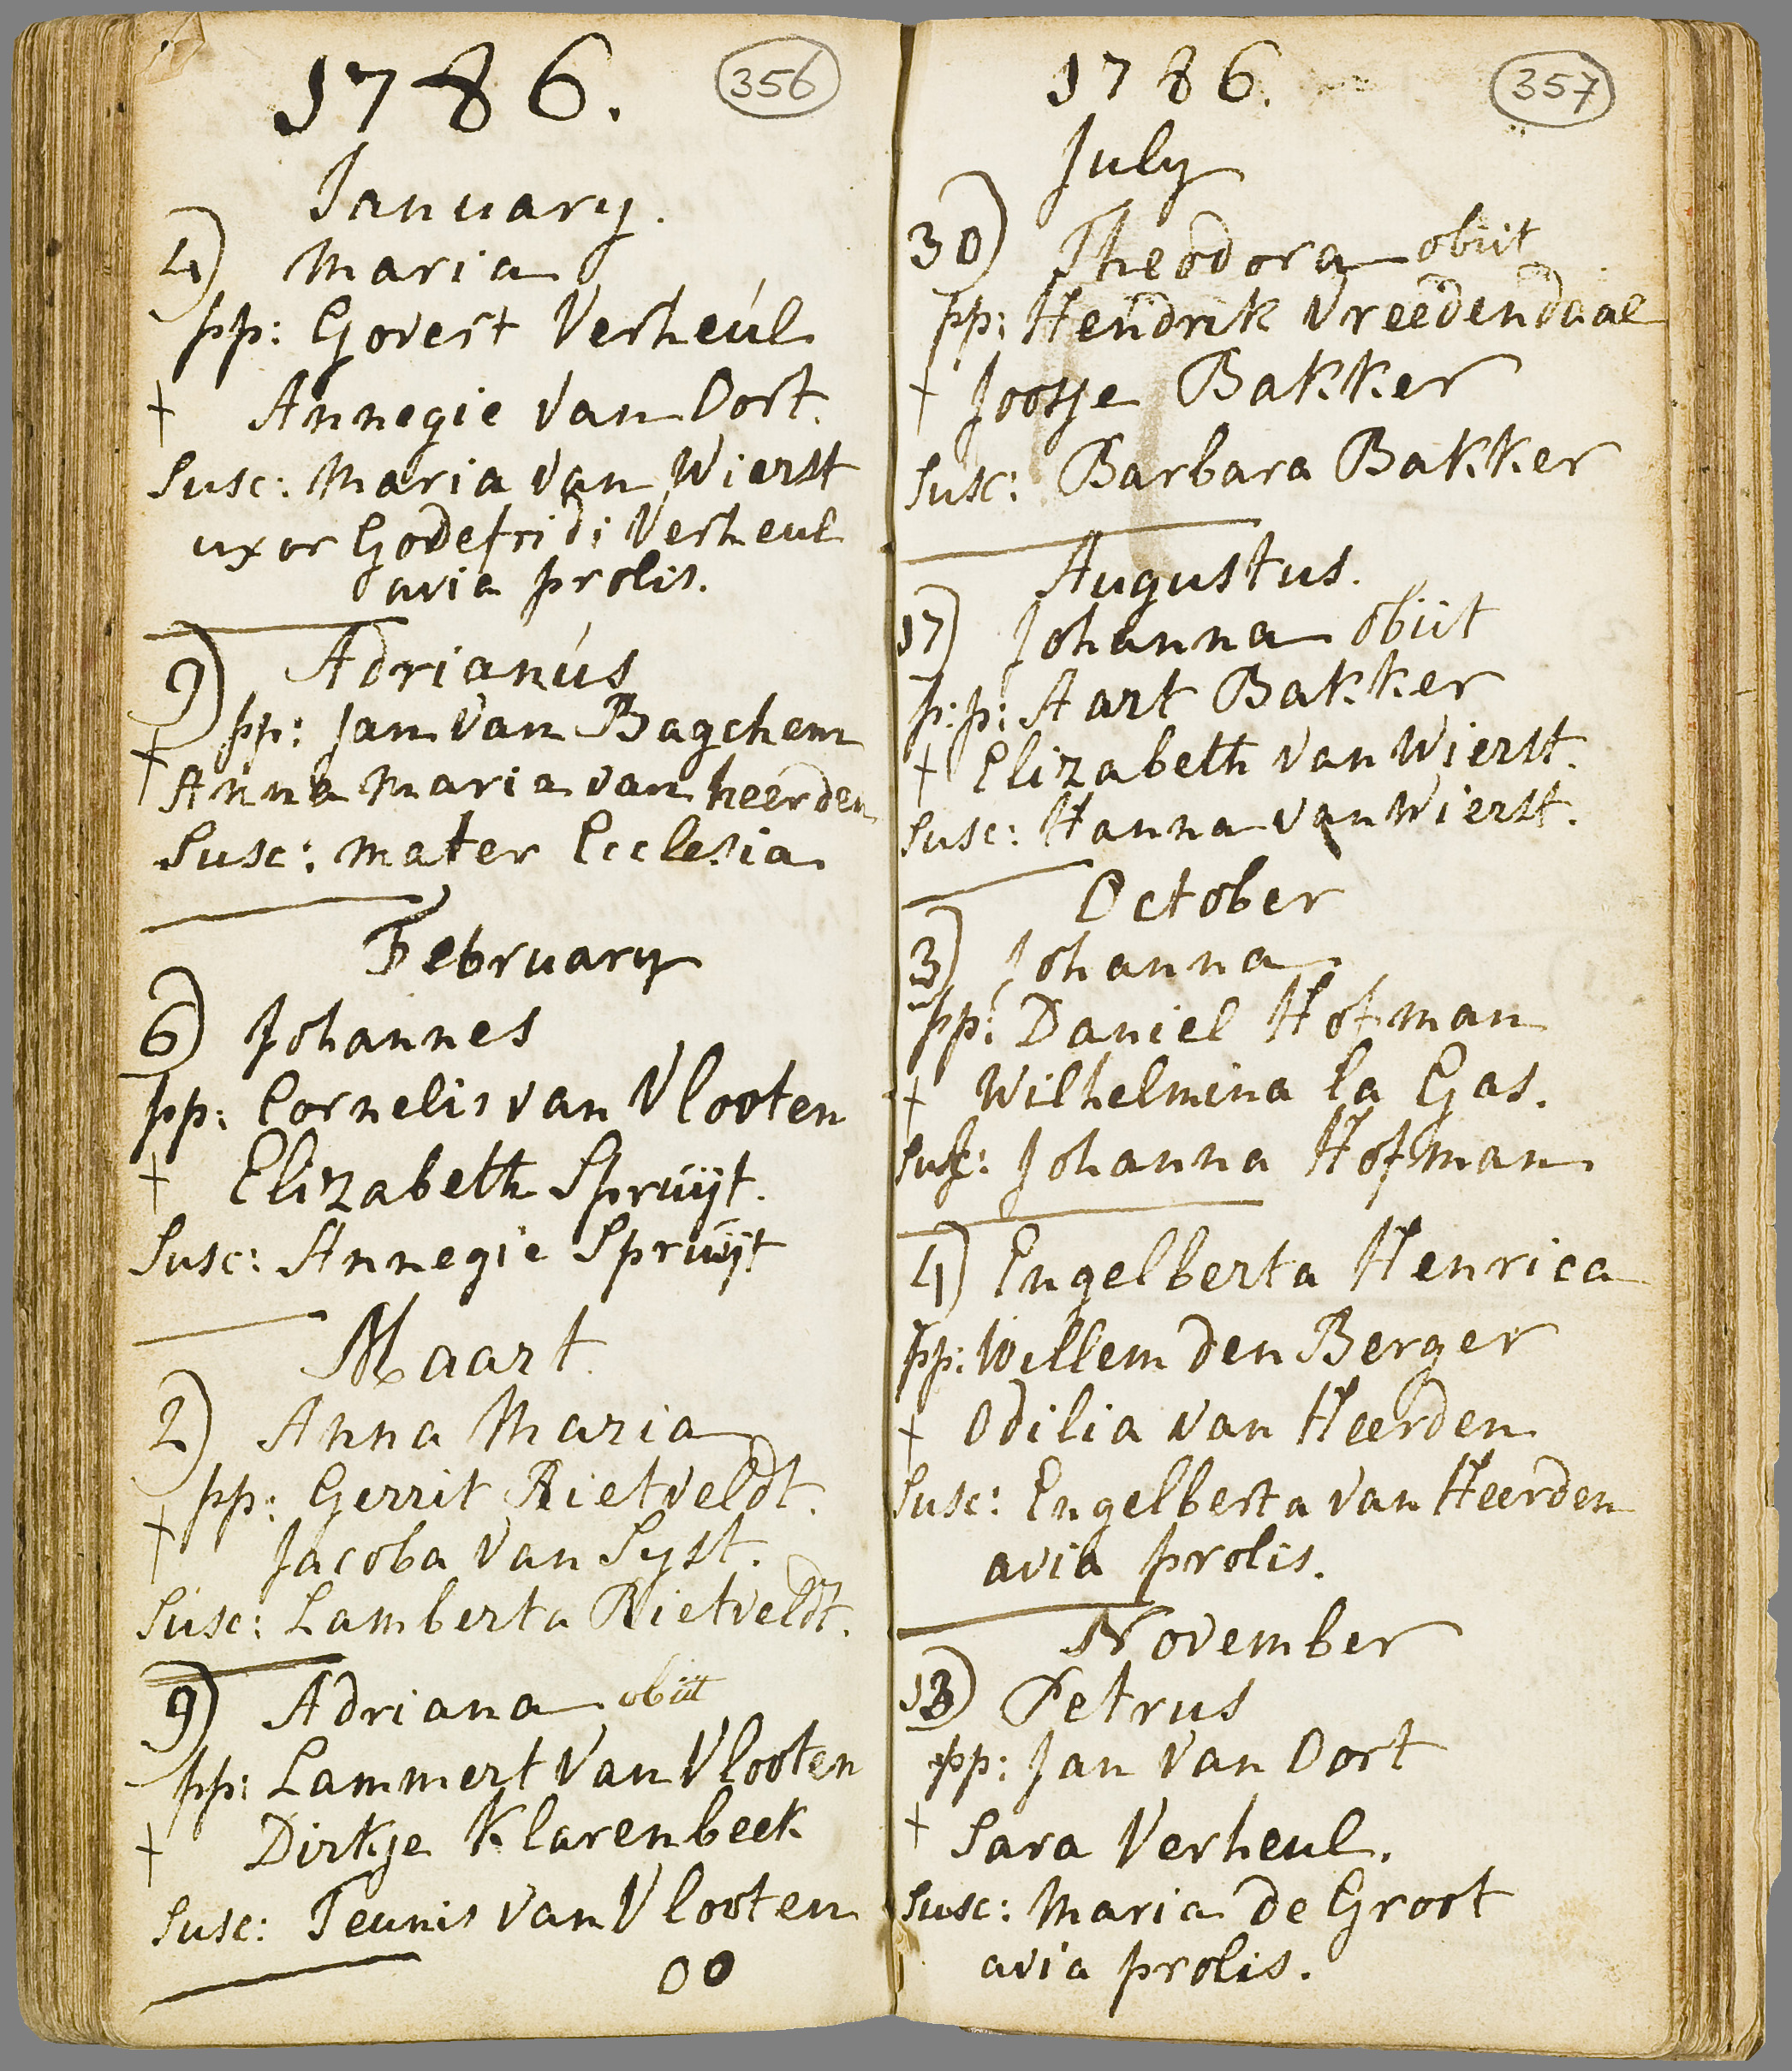 1786.
356
January.
4) Maria
pp: Govert Verheúl
† Annegie van Oort.
Susc: Maria van Wierst
uxor Godefridi Verheul
avia prolis.
9) Adrianús
pp: Jan van Bagchem
† Anna Maria van heerden
Susc: Mater Ecclesia
February
6) Johannes
pp: Cornelis van Vlooten
† Elizabeth Spruijt.
Susc: Annegie Spruijt
Maart
2) Anna Maria
pp: Gerrit Rietveldt.
† Jacoba van Syst.
Susc: Lamberta Rietveldt.
9) Adriana obiit
pp: Lammert van Vlooten
† Dirkje Klarenbeek
Susc: Teunis van Vlooten
00
1786.
357
July
30) Theodora obiit
pp: Hendrik Vreedendaal
† Jootje Bakker
Susc: Barbara Bakker
Augustus.
17) Johanna obiit
p:p: Aart Bakker
† Elizabeth van Wierst.
Susc: Hanna van Wierst.
October
3) Johanna
pp: Daniel Hofman
† Wilhelmina la Gas.
Susc: Johanna Hofman
4) Engelberta Henrica
pp: Willem den Berger
† Odilia van Heerden
Susc: Engelberta van Heerden
avia prolis.
November
13) Petrus
pp: Jan van Oort
† Sara Verheul.
Susc: Maria de Groot
avia prolis.